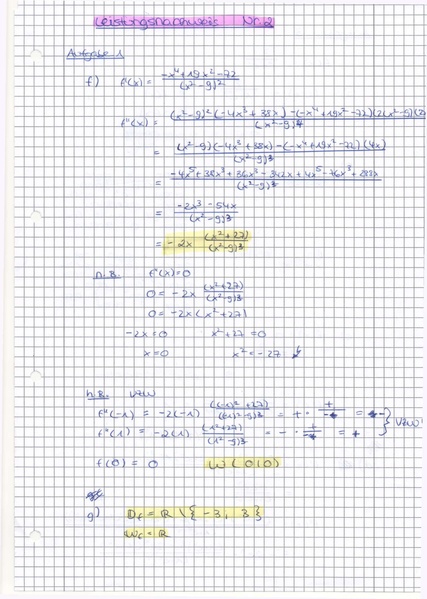 Leistungsnachweis Nr. 2
Aufgabe 1
f) f'(x) = (-x⁴+19x²-72)/(x²-9)²
f''(x) = ((x²-9)²(-4x³+38x)-(-x⁴+19x²-72)(2(x²-9)(2x)/(x²-9)⁴
= ((x²-9)(-4x³+38x)-(-x⁴+19x²-72)(4x))/(x²-9)³
= (-4x⁵+38x³+36x³-342x+4x⁵-76x³+288x)/(x²-9)³
= (-2x³-54x)/(x²-9)³
= -2x (x²+27)/(x²-9)³
n.B. f''(x)=0
0 = -2x (x²+27)/(x²-9)³
0 = -2x(x²+27)
-2x=0 x²+27=0
x=0 x²=-27
h.B. VZW
f''(-1) = -2(-1) ((-1)²+27)/((-1)²-9)³ = + · +/- = -
f''(1) = -2(1) (1²+27)/(1²-9)³ = - · +/- = + } VZW
f(0) = 0 W(0|0)
g) D_f = ℝ \ {-3, 3}
W_f = ℝ